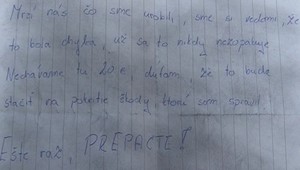 Mrzí nás čo sme urobili, sme si vedomí, že
to bola chyba, už sa to nikdy nezopakuje.
Nechávame tu 20 €, dúfam, že to bude
stačiť na pokrytie škody, ktorú som spravil.
Ešte raz, PREPÁČTE!